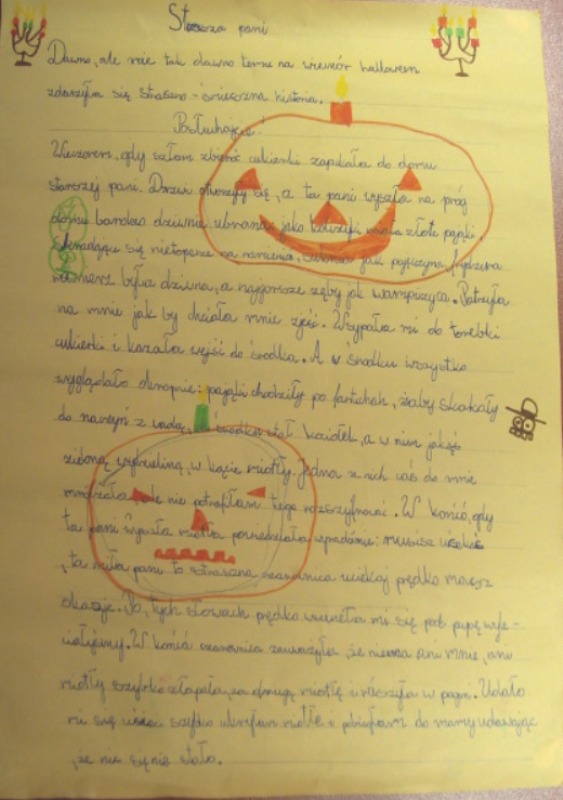 Starsza pani
Dawno, ale nie tak dawno temu na wieczór hallowen
zdarzyła się straszno-śmieszna historia.
Posłuchajcie!
Wieczorem, gdy szłam zbierać cukierki zapukałam do domu
starszej pani. Drzwi otworzyły się, a ta pani wyszła na próg
domu bardzo dziwnie ubrana: jako kolczyki miała złote pająki,
się nietoperze na ramieniu, jak pajęczyna, fryzura
również była dziwna, a najgorsze zęby jak wampirzyca. Patrzyła
na mnie jak by chciała mnie zjeść. Wsypała mi do torebki
cukierki i kazała wejść do środka. A w środku wszystko
wyglądało okropnie: pająki chodziły po fartuchah, żaby skakały
do naczyń z wodą, w środku stał kociołek, a w nim jakąś
zieloną wydzieliną, w kącie miotły. Jedna z nich coś do mnie
mruczała, ale nie potrafiłam tego rozszyfrować. W końcu, gdy
ta pani wyszła miotła powiedziała wyraźnie: musisz uciekać
, ta miła pani to straszna czarownica uciekaj prędko masz
okazję. Po tych słowach prędko wsunęła mi się pod pupę i wyle-
ciałyśmy. W końcu czarownica zauważyła, że niema ani mnie, ani
miotły szybko złapała za drugą miotłę i ruszyła w pogoń. Udało
mi się uciec szybko ukryłam miotłę i pobiegłam do mamy udawając
, że nic się nie stało.